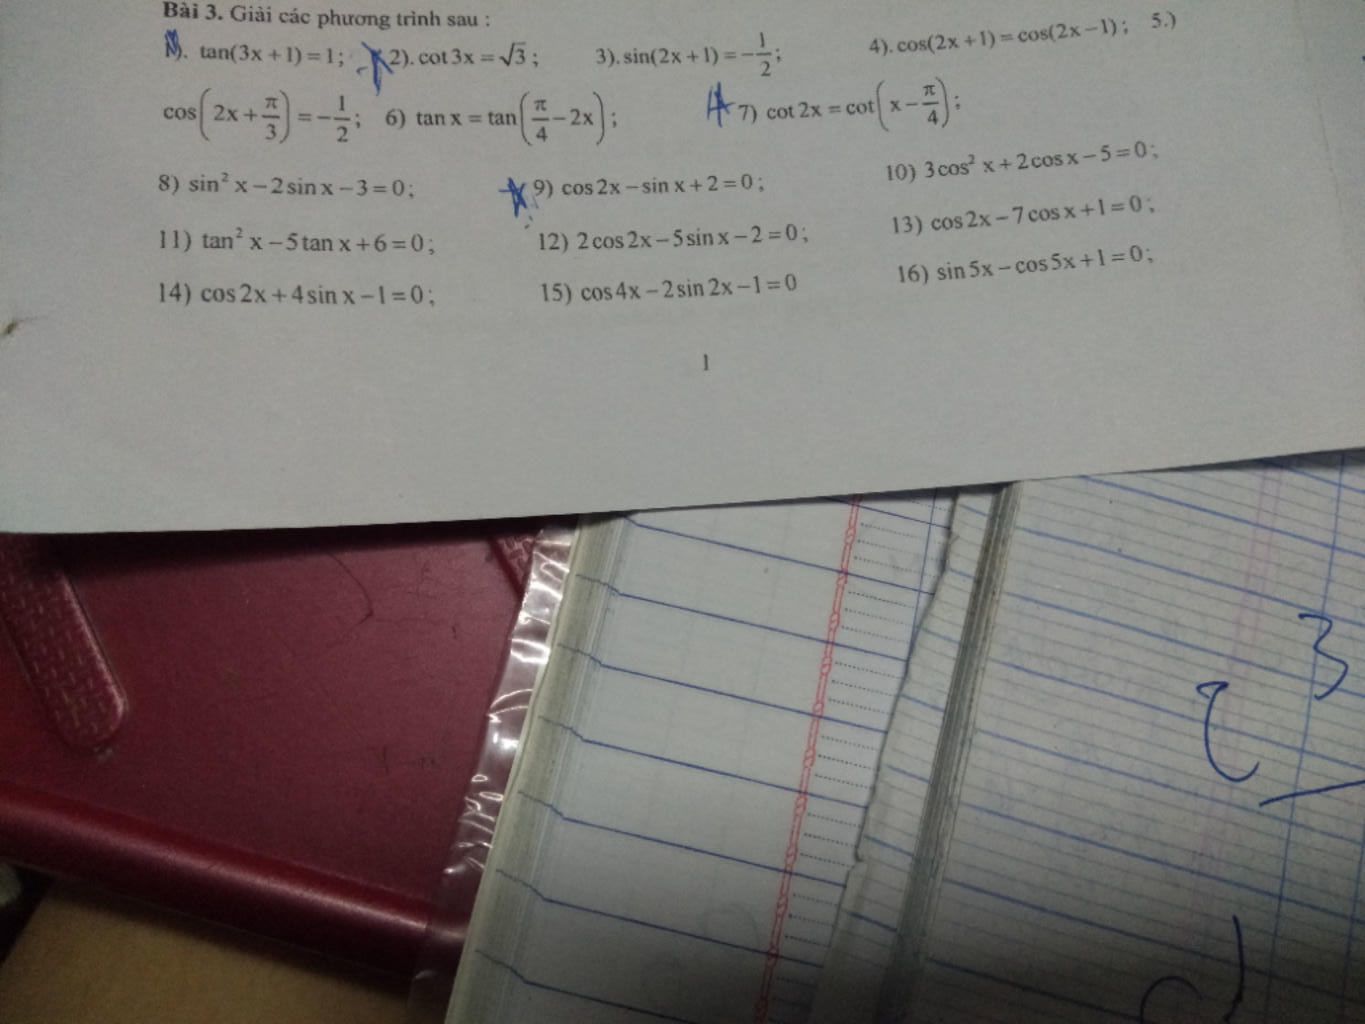 Bài 3. Giải các phương trình sau :
1). tan(3x + 1) = 1 ; 2). cot 3x = √3 ; 3). sin(2x + 1) = −1/2 ; 4). cos(2x + 1) = cos(2x − 1) ; 5.)
cos(2x + π/3) = −1/2 ; 6) tan x = tan(π/4 − 2x) ; 7) cot 2x = cot(x − π/4) ;
8) sin² x − 2 sin x − 3 = 0 ; 9) cos 2x − sin x + 2 = 0 ; 10) 3 cos² x + 2 cos x − 5 = 0 ;
11) tan² x − 5 tan x + 6 = 0 ; 12) 2 cos 2x − 5 sin x − 2 = 0 ; 13) cos 2x − 7 cos x + 1 = 0 ;
14) cos 2x + 4 sin x − 1 = 0 ; 15) cos 4x − 2 sin 2x − 1 = 0 16) sin 5x − cos 5x + 1 = 0 ;
1
3